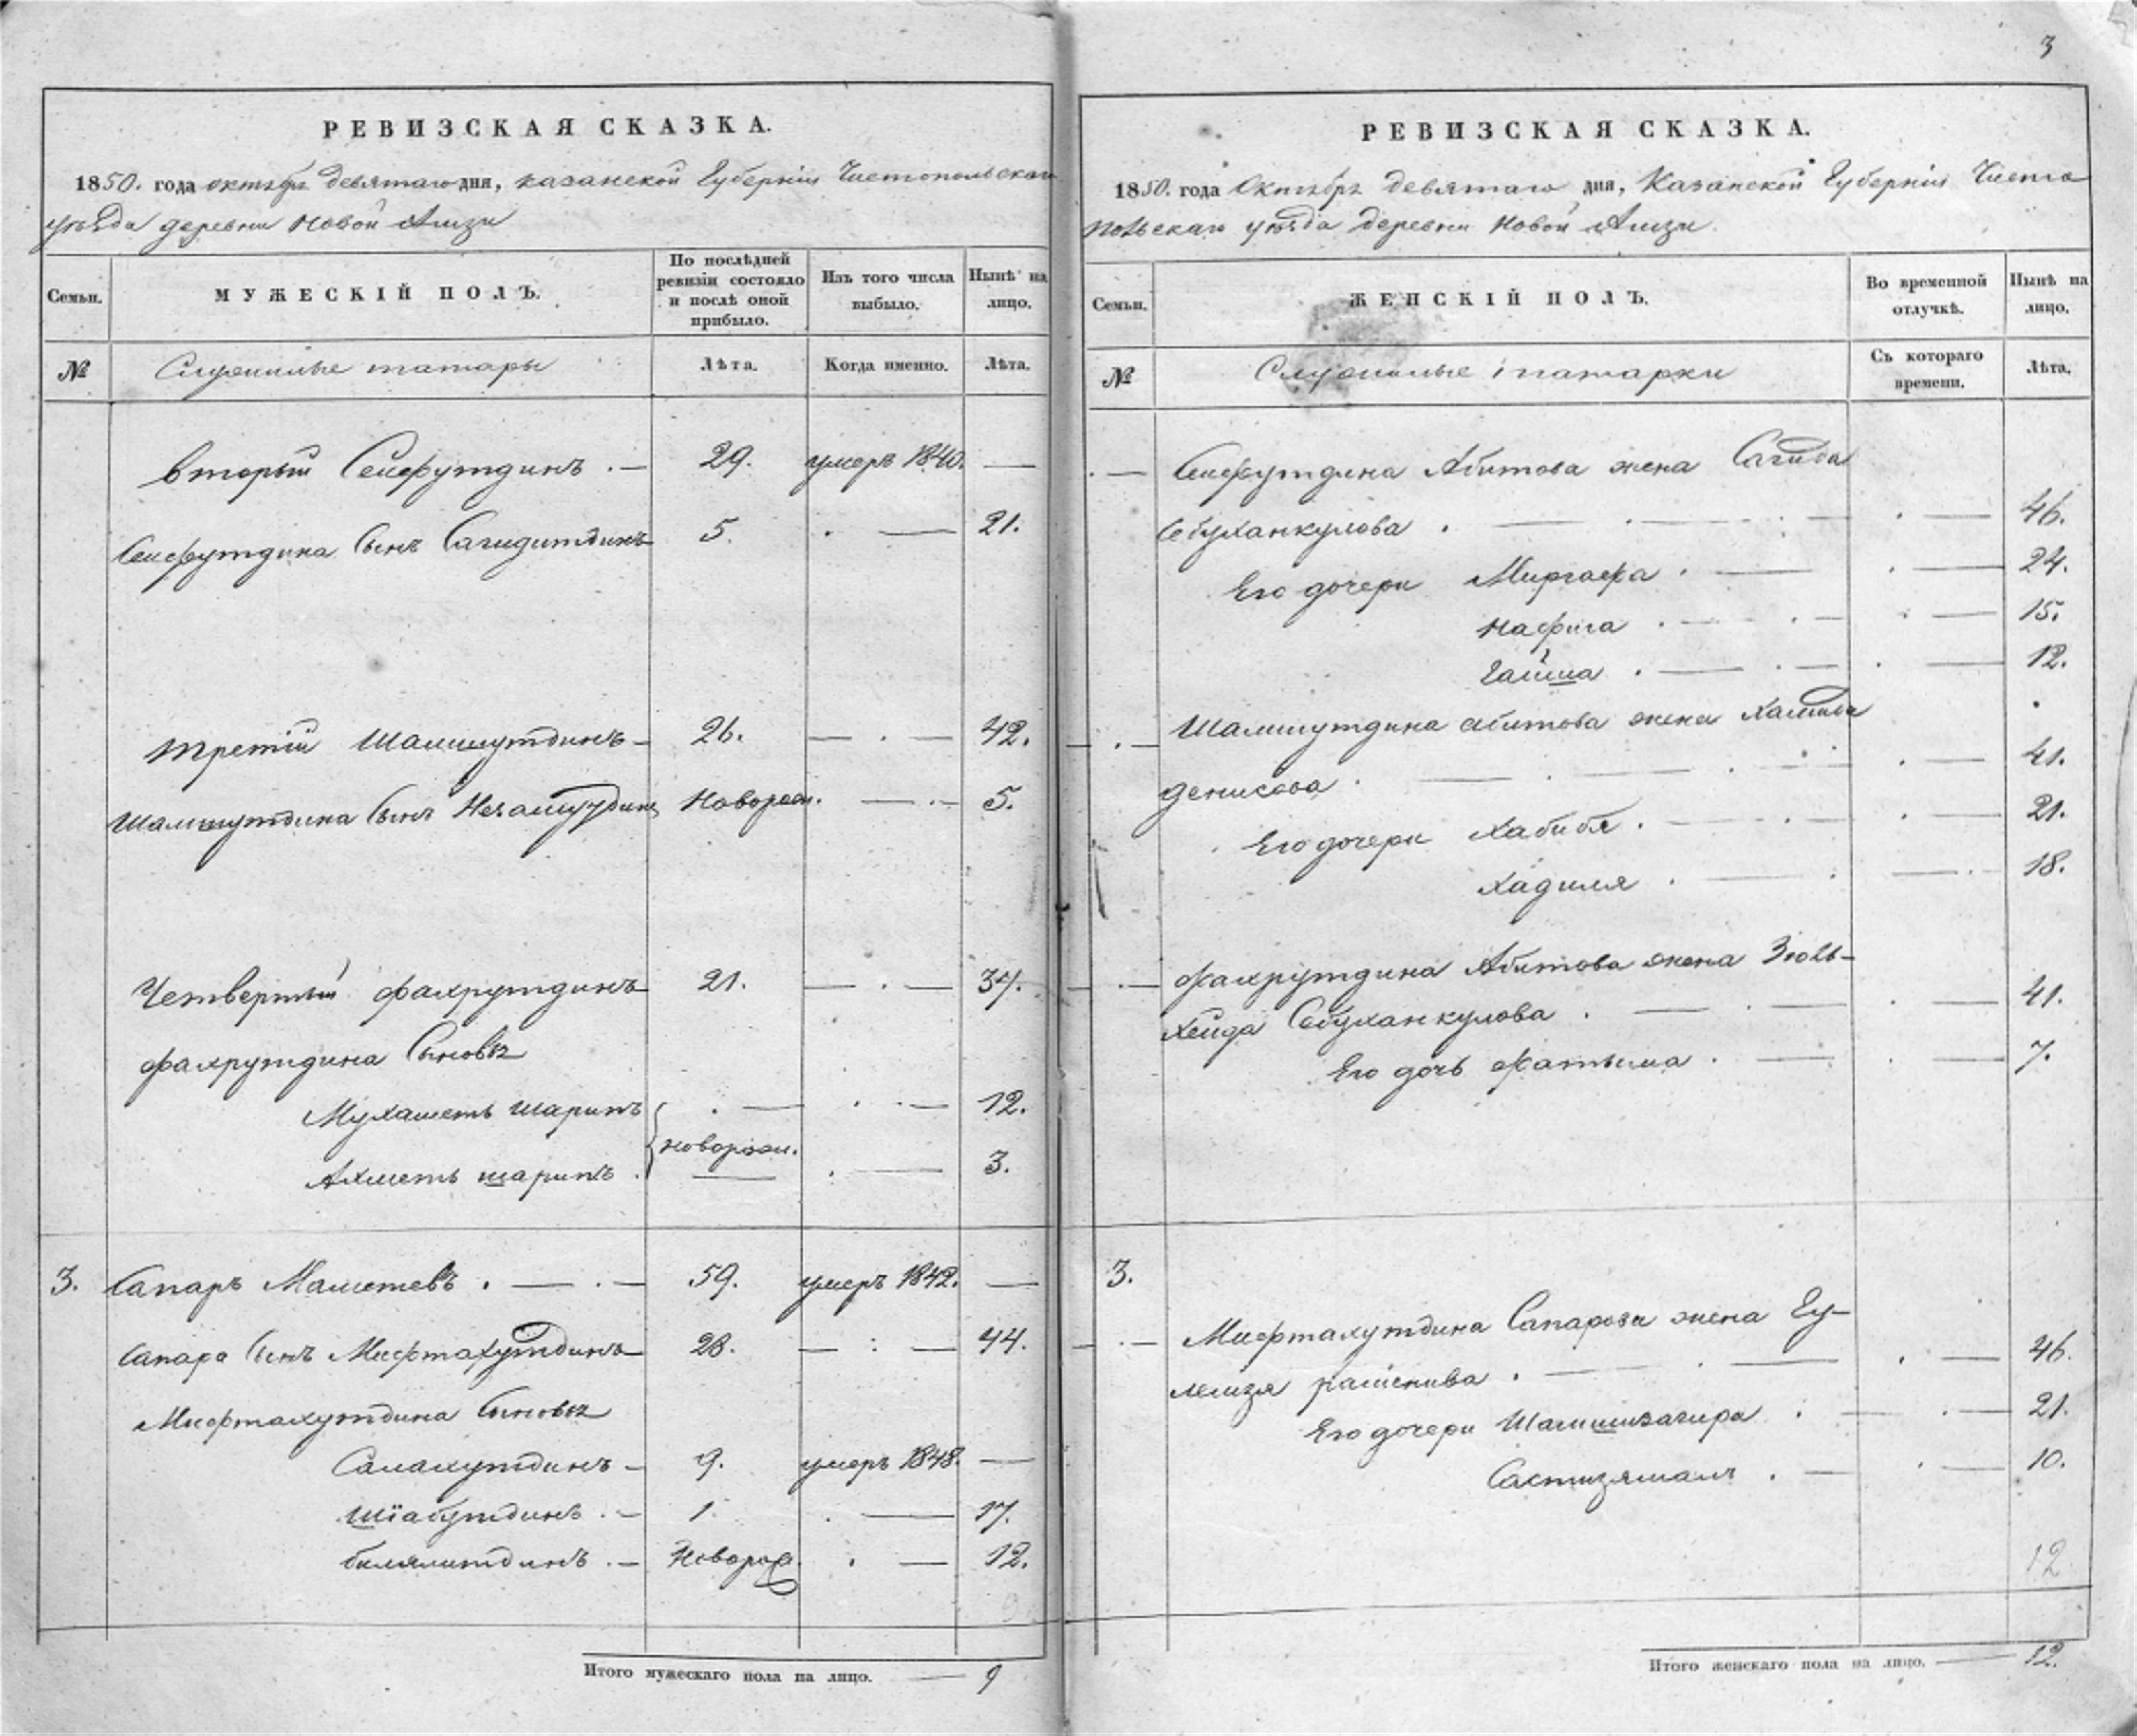 3
РЕВИЗСКАЯ СКАЗКА.
1850. года октября девятаго дня, казанской Губерніи Чистопольскаго
уѣзда деревни Новой Амзи
Семьи.
МУЖЕСКІЙ ПОЛЪ.
По послѣдней ревизіи состояло и послѣ оной прибыло.
Изъ того числа выбыло.
Нынѣ на лицо.
№
Служилые татары
Лѣта.
Когда именно.
Лѣта.
второй Сейфутдинъ . — 29. умеръ 1840. —
Сейфутдина Сынъ Сагидитдинъ 5. . — 21.
третій Шамшутдинъ — 26. — . — 42.
Шамшутдина Сынъ Незамутдинъ Новорож. — . — 5.
Четвертый Фахрутдинъ 21. — . — 37.
Фахрутдина Сыновья
Мухаметь шарипъ . — . — 12.
новорож.
Ахметь шарипъ . — . — 3.
3. Сапаръ Маметевъ . — . — 59. умеръ 1842. —
Сапара Сынъ Мифтахутдинъ 28. — : — 44.
Мифтахутдина Сыновья
Салахутдинъ — 9. умеръ 1848. —
Шіабутдинъ . — 1. . — 17.
билялитдинъ . — Новорож. . — 12.
9
Итого мужескаго пола на лицо. — 9
РЕВИЗСКАЯ СКАЗКА.
1850. года Октября девятаго дня, Казанской Губерніи Чисто
польскаго уѣзда деревни Новой Амзи.
Семьи.
ЖЕНСКІЙ ПОЛЪ.
Во временной отлучкѣ.
Нынѣ на лицо.
№
Служилые татарки
Съ котораго времени.
Лѣта.
. — Сейфутдина Абитова жена Сагида
Собуханкулова . — . — . — 46.
Его дочери Миргафа . — . — 24.
Нафига . — . — . — 15.
Гайша . — . — . — 12.
— . — Шамшутдина абитова жена Халива
денисова . — . — . — 41.
Его дочери Хабибя . — . — . — 21.
Хадиля . — . — 18.
— . — Фахрутдина Абитова жена Зюль-
хеида Собуханкулова . — . — . — 41.
Его дочь Фатыма . — . — 7.
3.
— . — Мифтахутдина Сапарова жена Гу-
лемзя . — . — . — 46.
Его дочери Шамшизагира . — . — 21.
. — . — 10.
12
Итого женскаго пола на лицо. — 12.